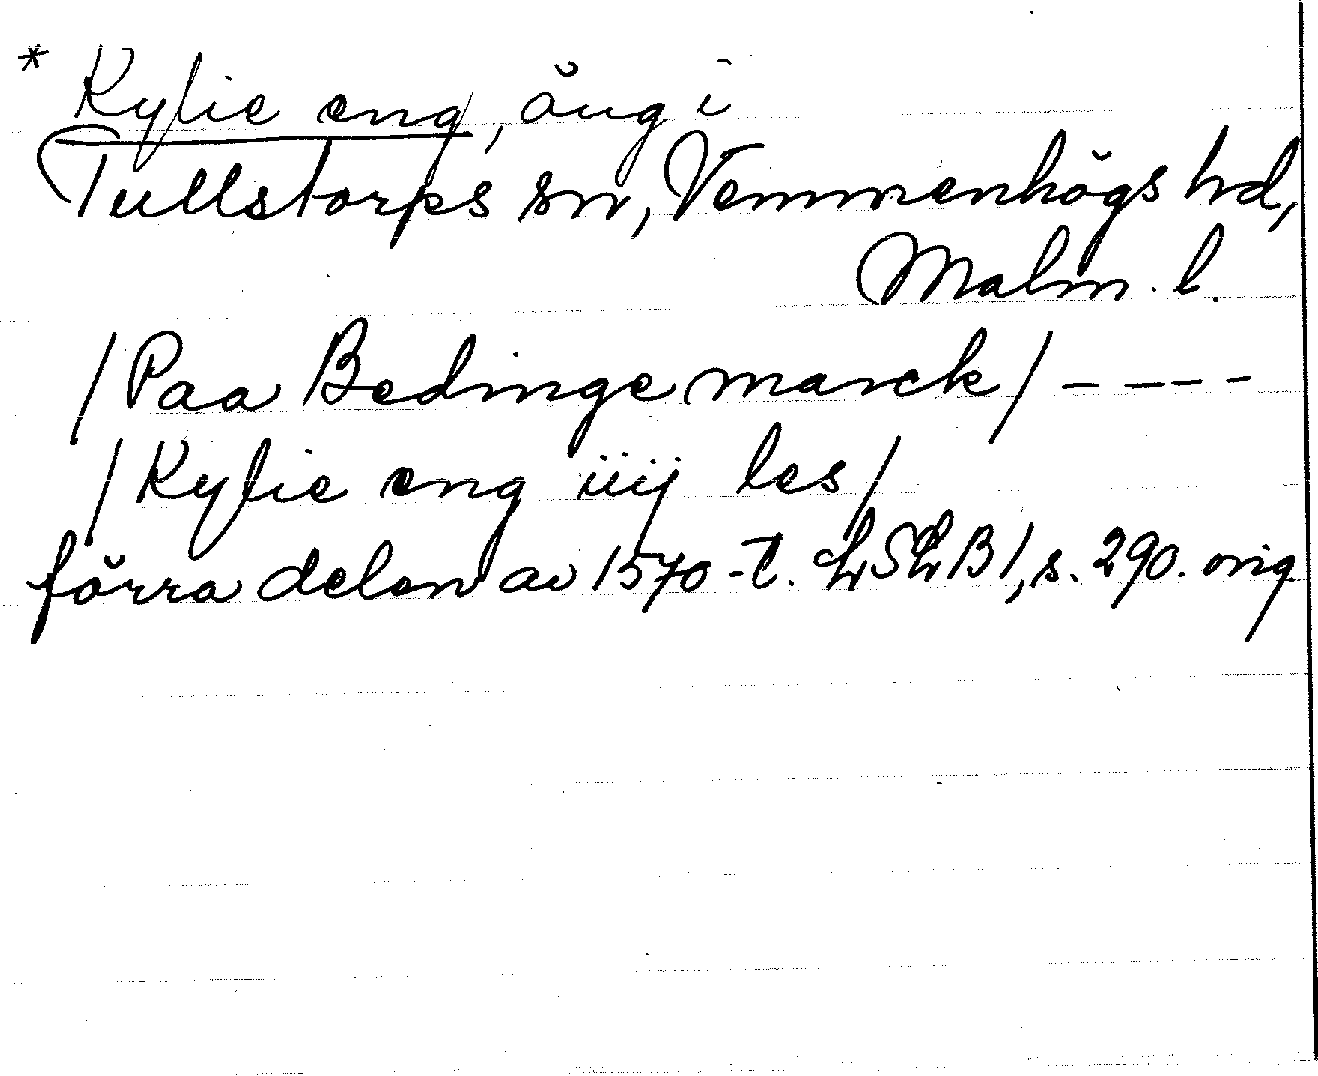 * Kylie eng, äng i
Tullstorps sn, Vemmenhögs hd,
Malm. l.
/Paa Bedinge marck/ - - - -
/Kylie eng iiij les/
förra delen av 1570-t. LSLB1, s. 290. orig